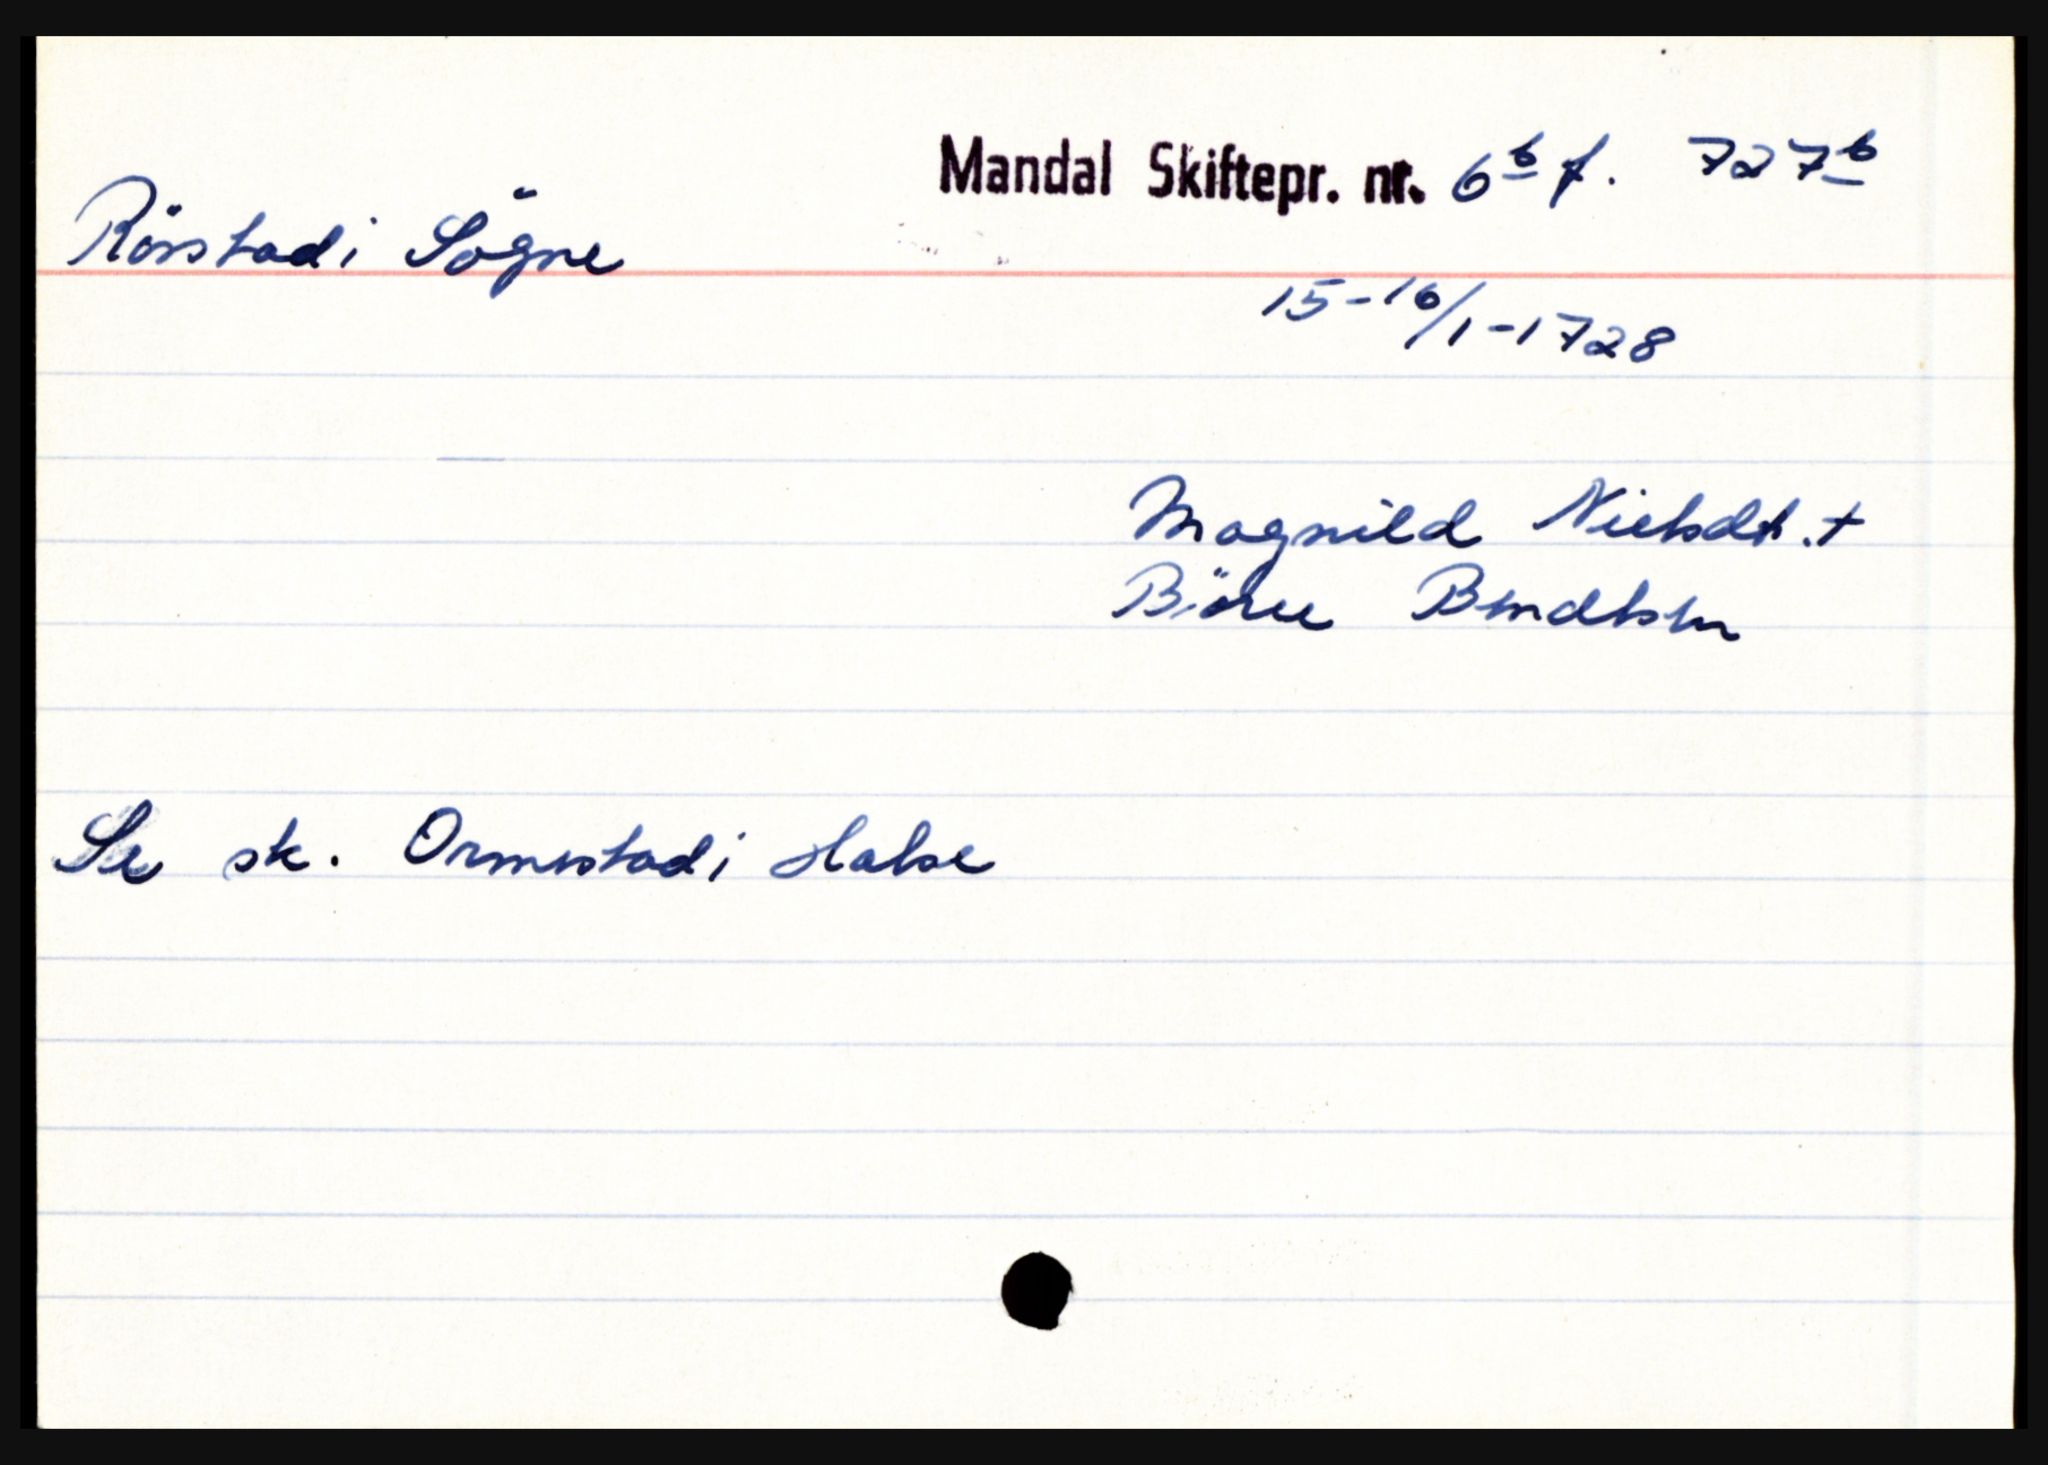 Mandal Skiftepr. nr. 6b f. 727b
Rörstad i Sögne
15-16/1-1728
Magnild Nielsdt. +
Börre Berndtsen
Se sk. Ormestad i Halse